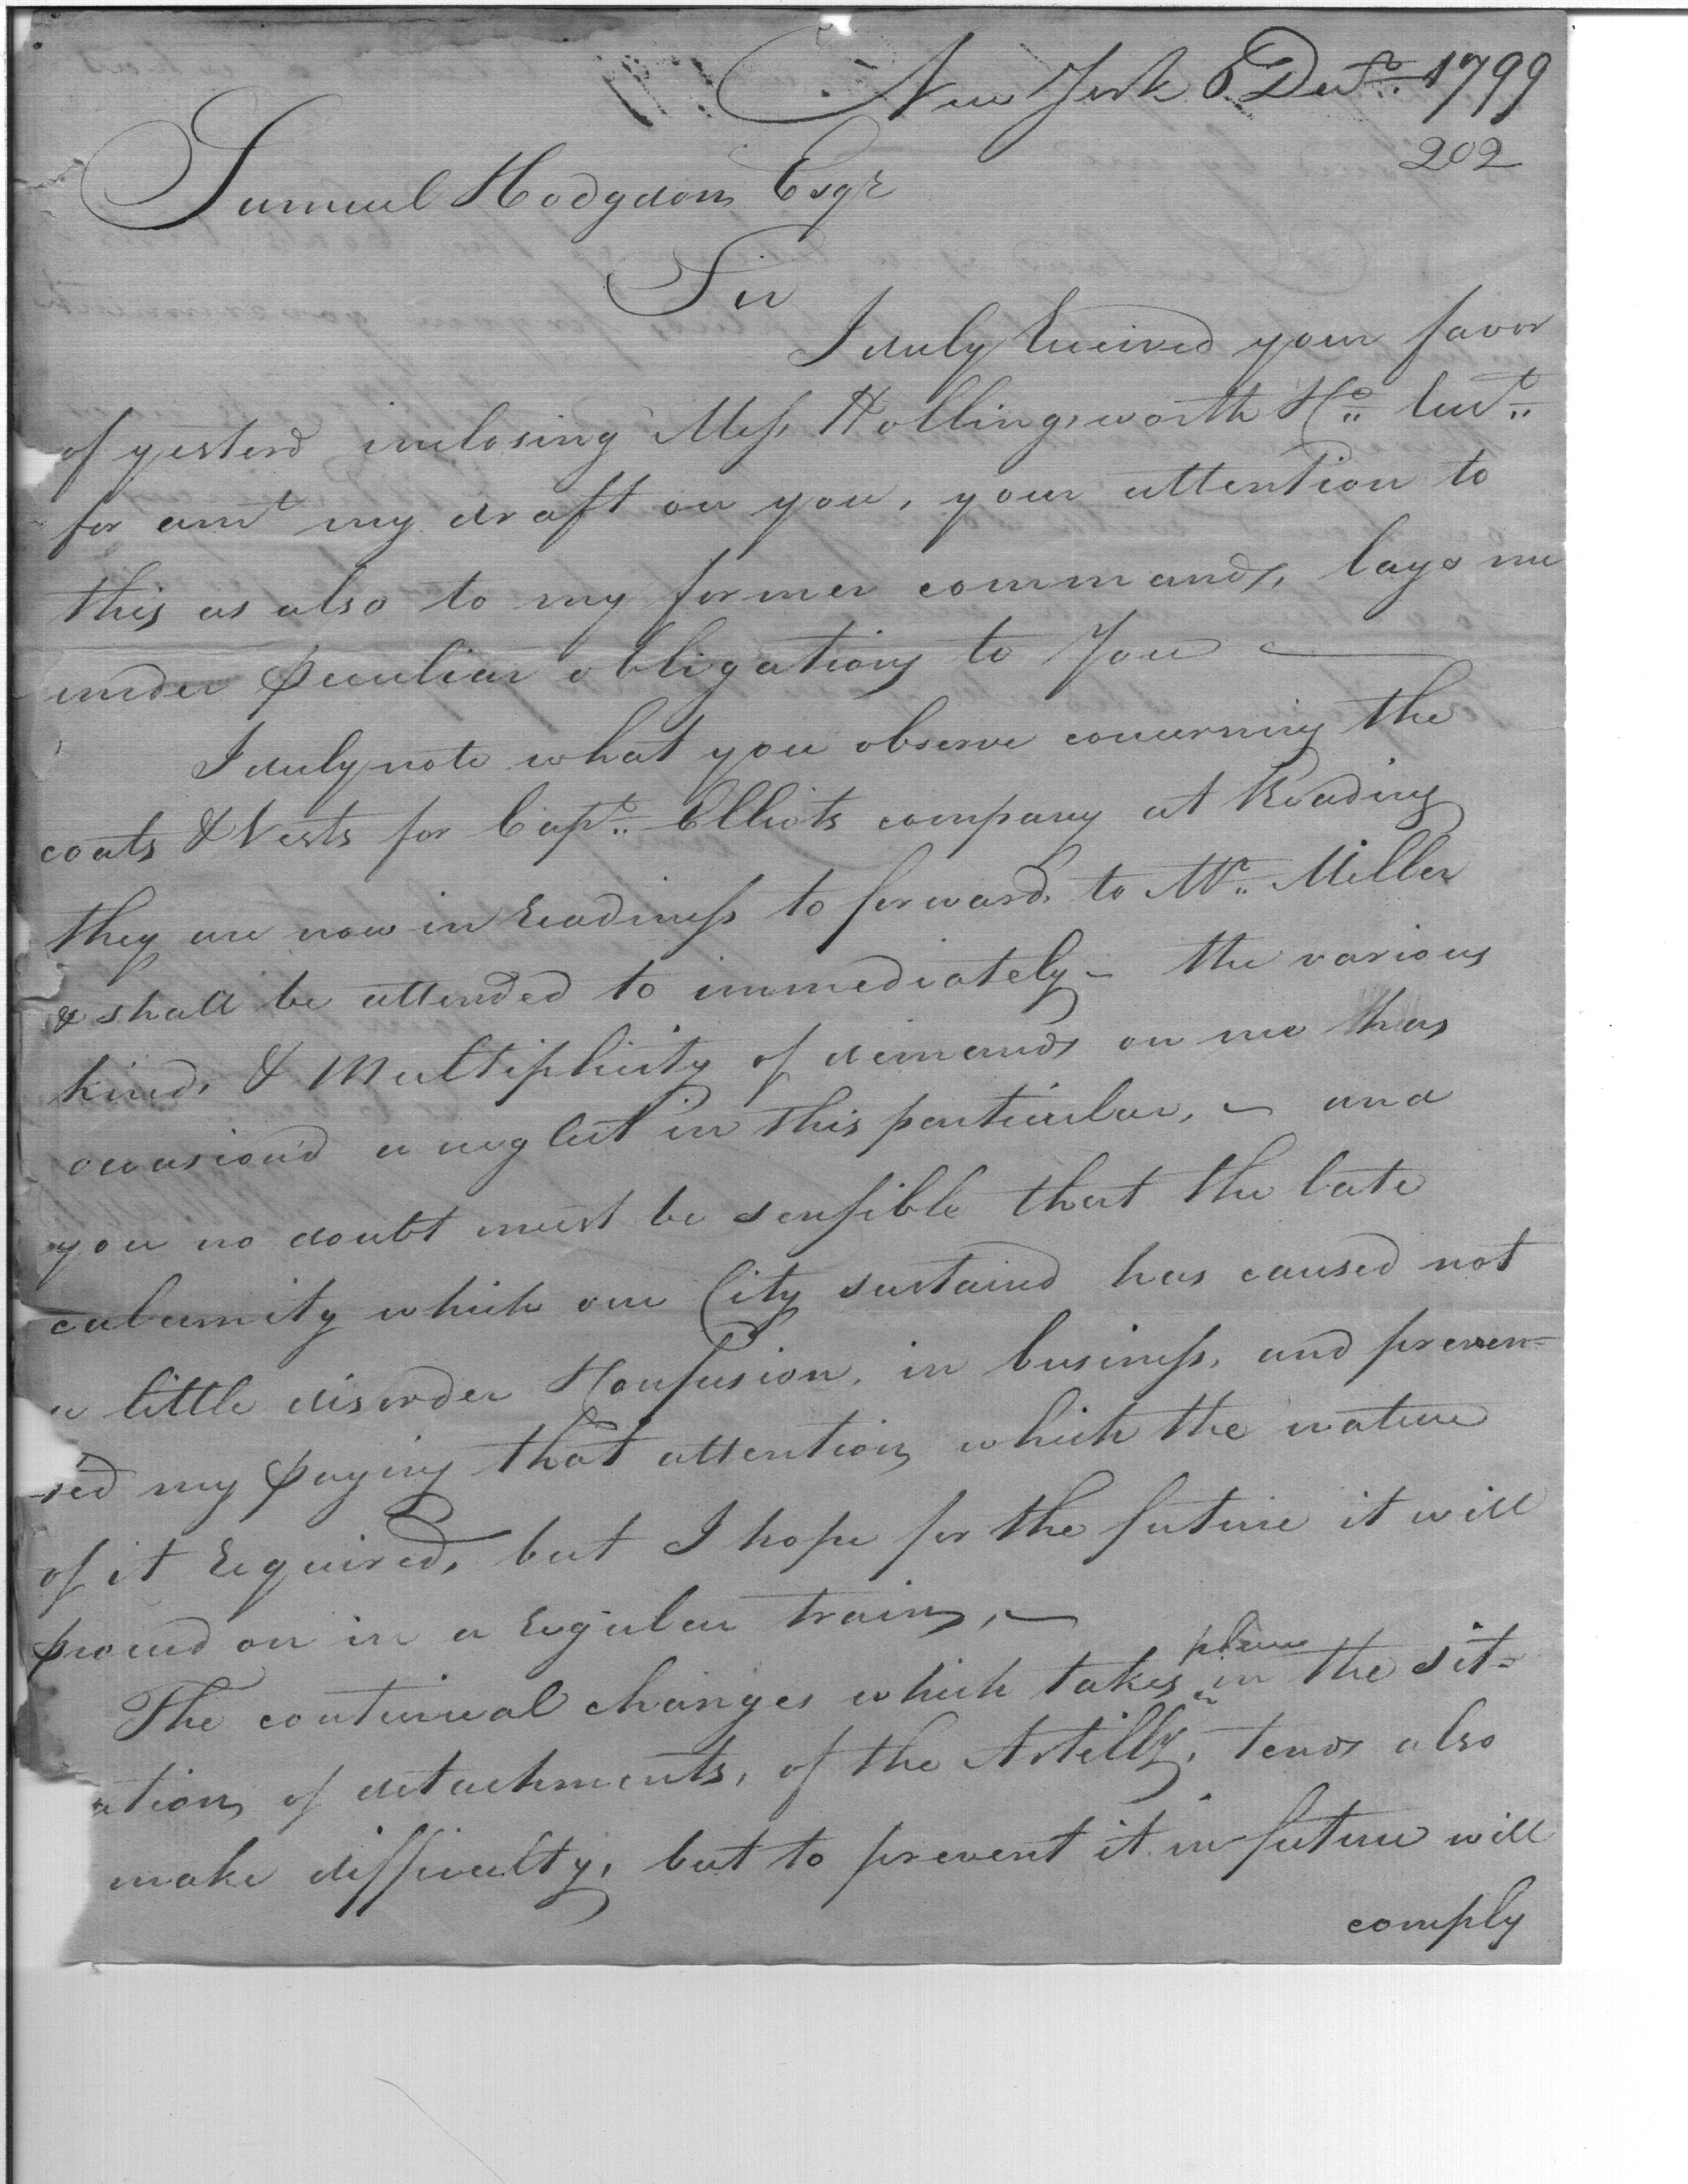 New York 6 Decr. 1799
202
Samuel Hodgdon Esqr
Sir
I duly Received your favor
of yesterd inclosing Mess Hollingsworth &Co.. 
for amt my draft on you, your attention to
this as also to my former commands, lays me
under peculiar obligations to You —
I duly note what you observe concerning the
coats & Vests for Capt.. Elliots company at Reading
they are now in Readiness to forward, to Mr.. Miller
& shall be attended to immediately – the various
kinds & Multiplicity of demands on me has
occasion'd a neglect in this particular, – and
you no doubt must be sensible that the late
calamity which our City sustained has caused not
a little disorder & Confusion, in business, and preven=
ted my paying that attention which the nature
of it Required, but I hope for the future it will
proceed on in a Regular train, –
The continual changes which takes place in the sit=
ation of detachments, of the Artilly, tends also
make difficulty, but to prevent it in future will
comply